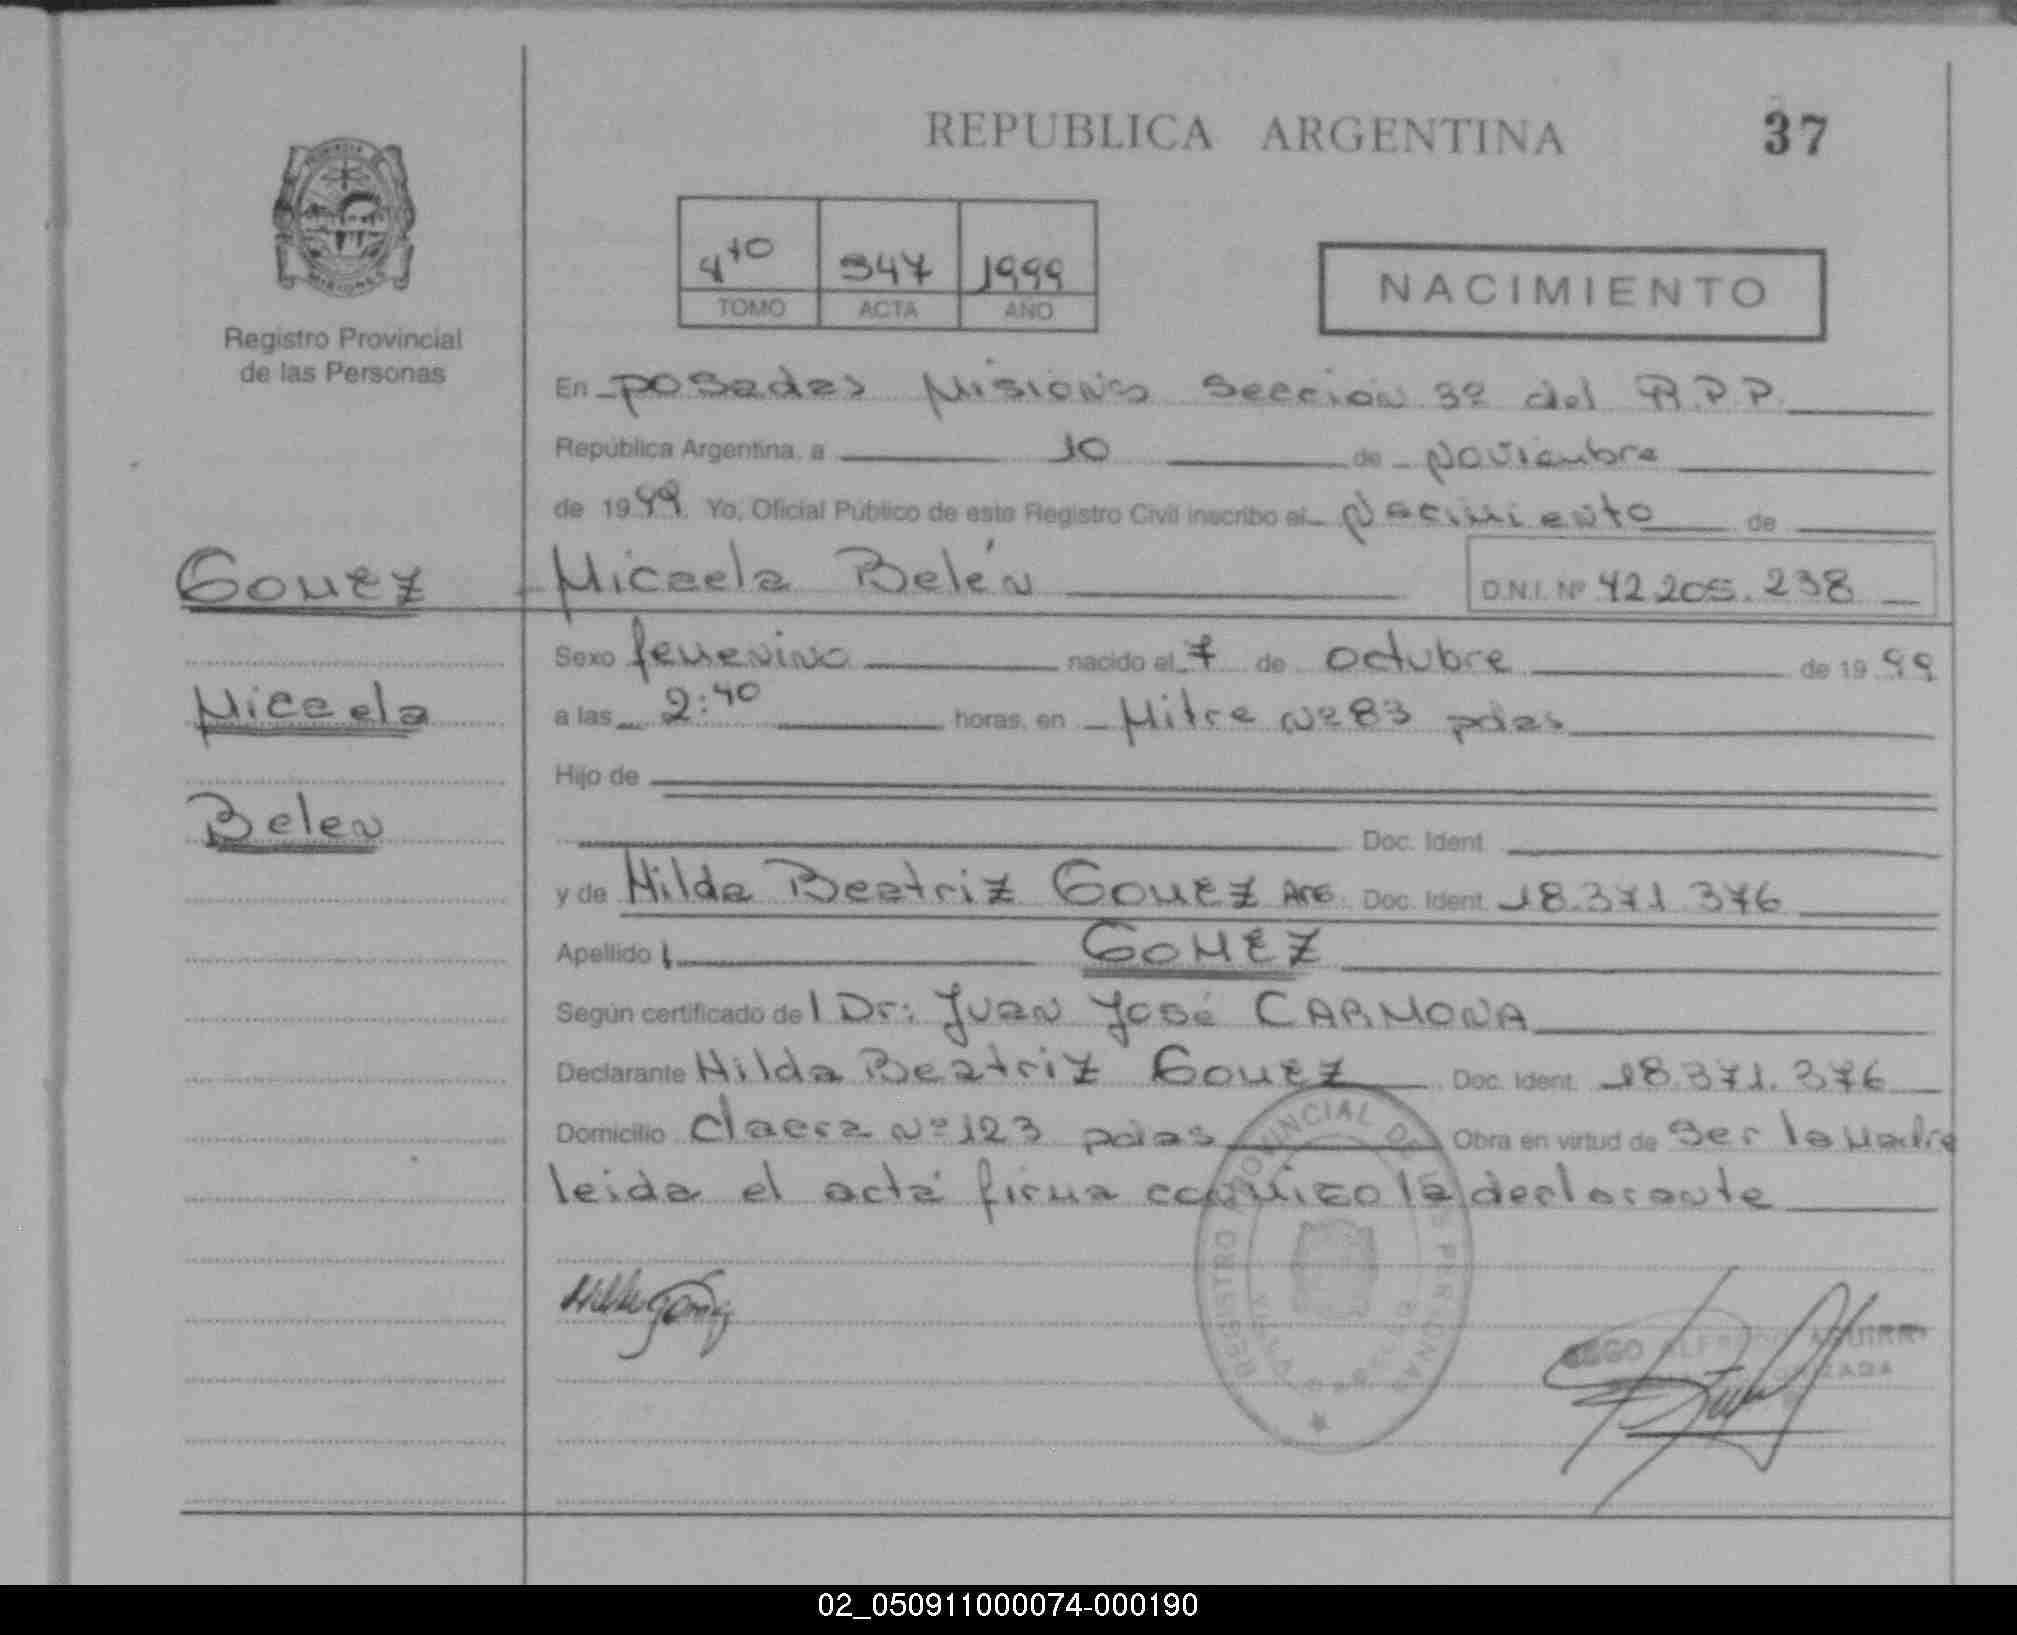 REPUBLICA ARGENTINA
37
4to 947 1999
TOMO ACTA AÑO
NACIMIENTO
Registro Provincial
de las Personas
En Posadas Misiones Sección 3º del R.P.P.
República Argentina, a 10 de Noviembre
de 1999. Yo, Oficial Público de este Registro Civil inscribo el Nacimiento de
GOMEZ Micaela Belén D.N.I. Nº 42.205.238
Sexo femenino nacido el 7 de octubre de 1999
Micaela
a las 2:40 horas, en Mitre Nº 83 pdas
Hijo de
Belen
Doc. Ident.
y de Hilda Beatriz GOMEZ ARG. Doc. Ident. 18.371.376
Apellido GOMEZ
Según certificado del Dr: Juan José CARMONA
Declarante Hilda Beatriz Gomez Doc. Ident. 18.371.376
Domicilio Nº 123 pdas Obra en virtud de ser la Madre
leida el acta firma conmigo la declarante
REGISTRO PROVINCIAL DE LAS PERSONAS
Hilda Gómez
ALFREDO AGUIRRE
02_050911000074-000190